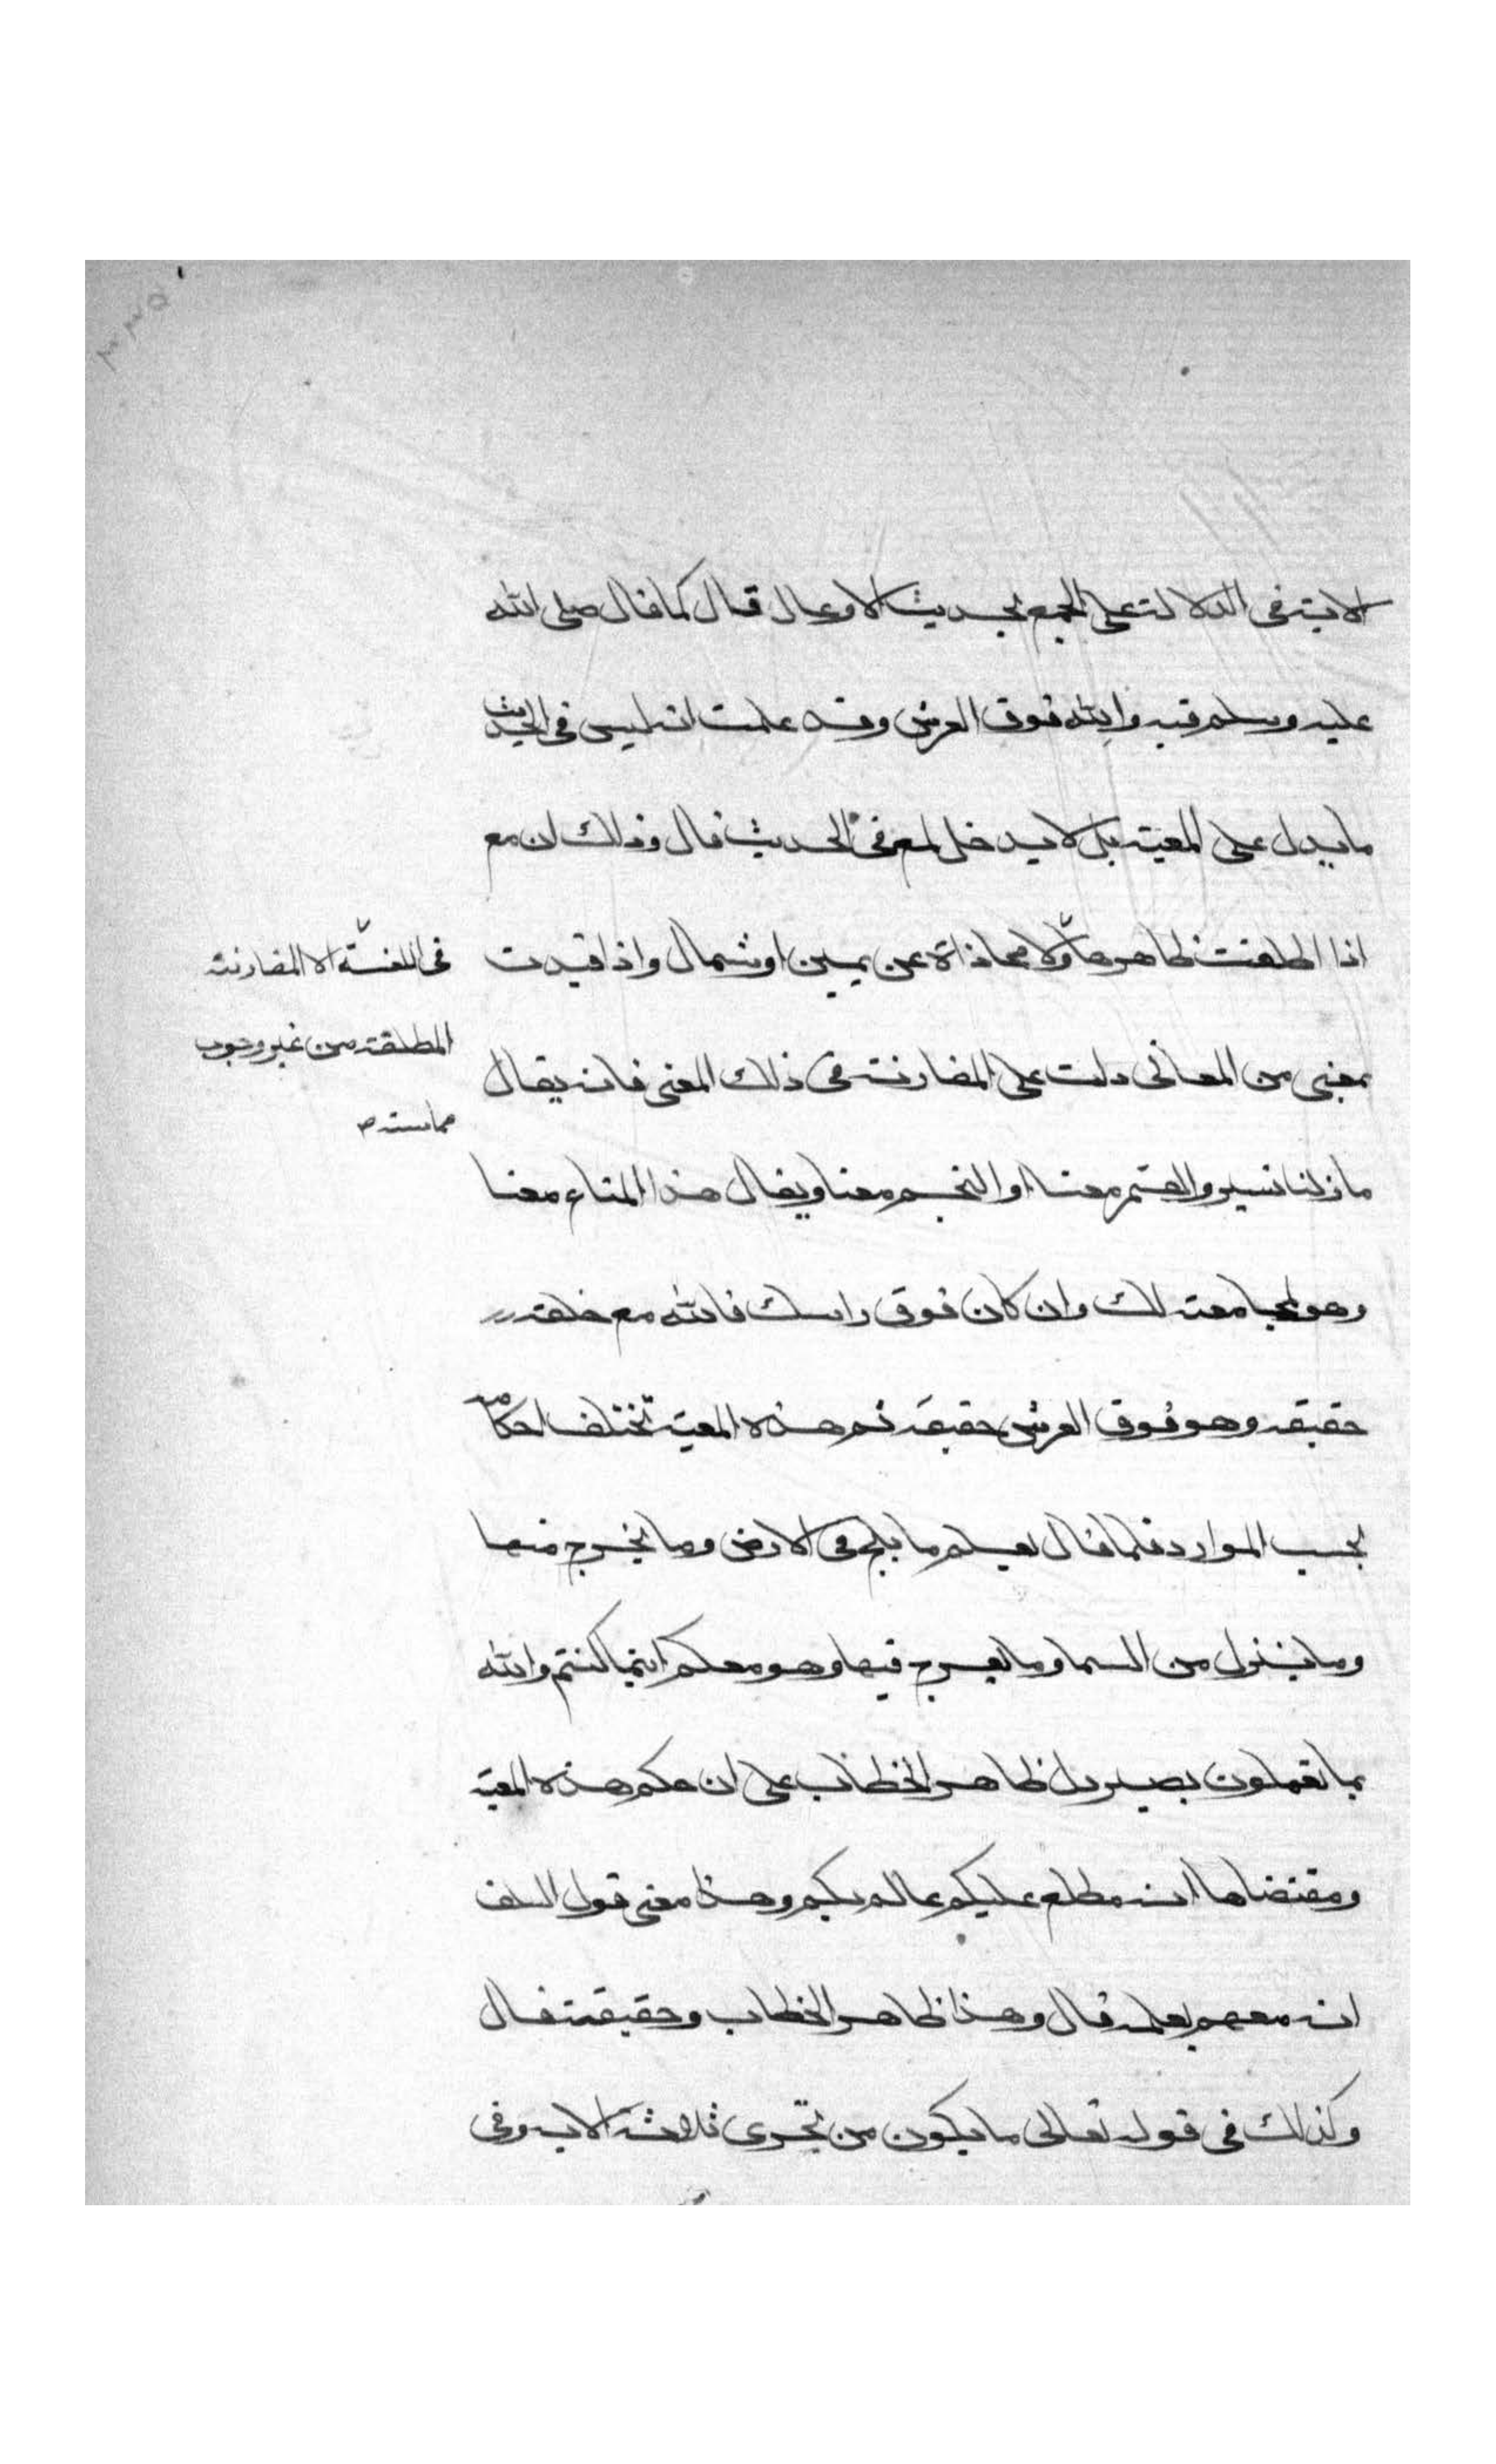 الاية فى الدلالة على الجمع بحديث الاوعال قال كما قال صلى الله
عليه وسلم فيه والله فوق العرش وقد علمت انه ليس فى الحديث
ما يدل على المعية بل لا يدخل لمع فى الحديث قال وذلك ان مع
اذا اطلقت ظاهرها ولا محاذاة عن يمين او شمال واذا قيدت
بمعنى من المعانى دلت على المقارنة فى ذلك المعنى فانه يقال
ما زلنا نسير والقمر معنا او النجم معنا ويقال هذا المتاع معنا
وهو لمجامعته لك وان كان فوق راسك فالله مع خلقه
حقيقه وهو فوق العرش حقيقة ثم هذه المعية تختلف احكامه
بحسب الموارد فلما قال يعلم ما يلج فى الارض وما يخرج منها
وما ينزل من السما وما يعرج فيها وهو معكم اينما كنتم والله
بما تعملون بصير دل ظاهر الخطاب على ان حكم هذه المعية
ومقتضاها انه مطلع عليكم عالم بكم وهذا معنى قول السلف
انه معهم بعلمه قال وهذا ظاهر الخطاب وحقيقته قال
وكذلك فى قوله تعالى ما يكون من نجوى ثلاثة الايه وفى
فى اللغة الا المقارنة
المطلقة من غير وجوب
مماسته
٣٣٥